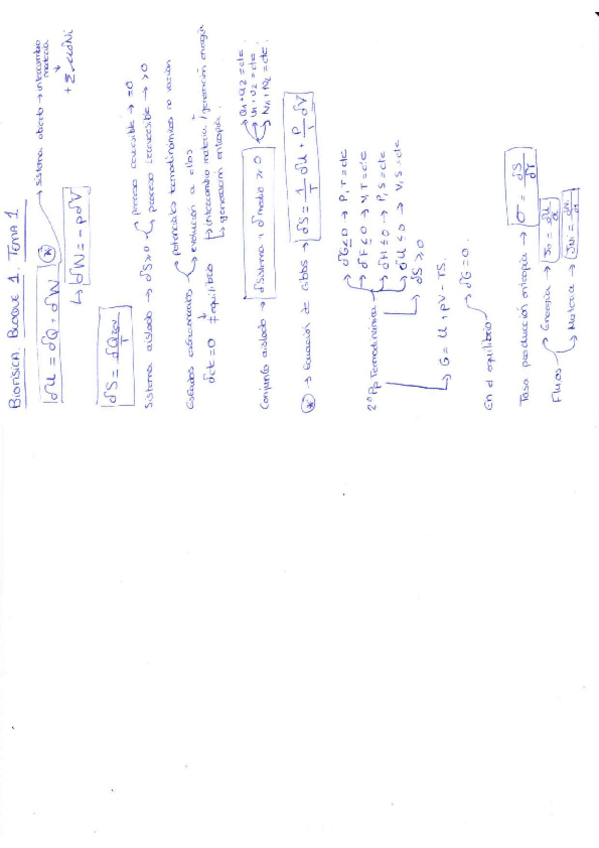 BIOFÍSICA. BLOQUE 1. TEMA 1
dU = dQ + dW (*) → Sistema abierto → intercambio materia
↓
+ Σ
↳ dW = -pdV
dS = dQrev/T
Sistema aislado → dS≥0 → proceso reversible → =0
→ proceso irreversible → >0
Estados estacionarios → potenciales termodinámicos no varían
→ evolución a ellos
dcte = 0 ≠ equilibrio → intercambio materia / generación energía
↳ generación entropía.
Conjunto aislado → dSsistema + dSmedio ≥ 0
U1+U2 = cte.
V1+V2 = cte.
N1+N2 = cte.
(*) → Ecuación de Gibbs → dS = 1/T dU + P/T dV
2º Pp Termodinámica → dG ≤ 0 → P, T = cte
→ dF ≤ 0 → V, T = cte
→ dH ≤ 0 → P, S = cte
→ dU ≤ 0 → V, S = cte
↳ dS ≥ 0
↳ G = U + pV - TS.
En el equilibrio → dG = 0.
Tasa producción entropía → σ = dS/dt
Flujos → Energía → = dU/dt
→ Materia →